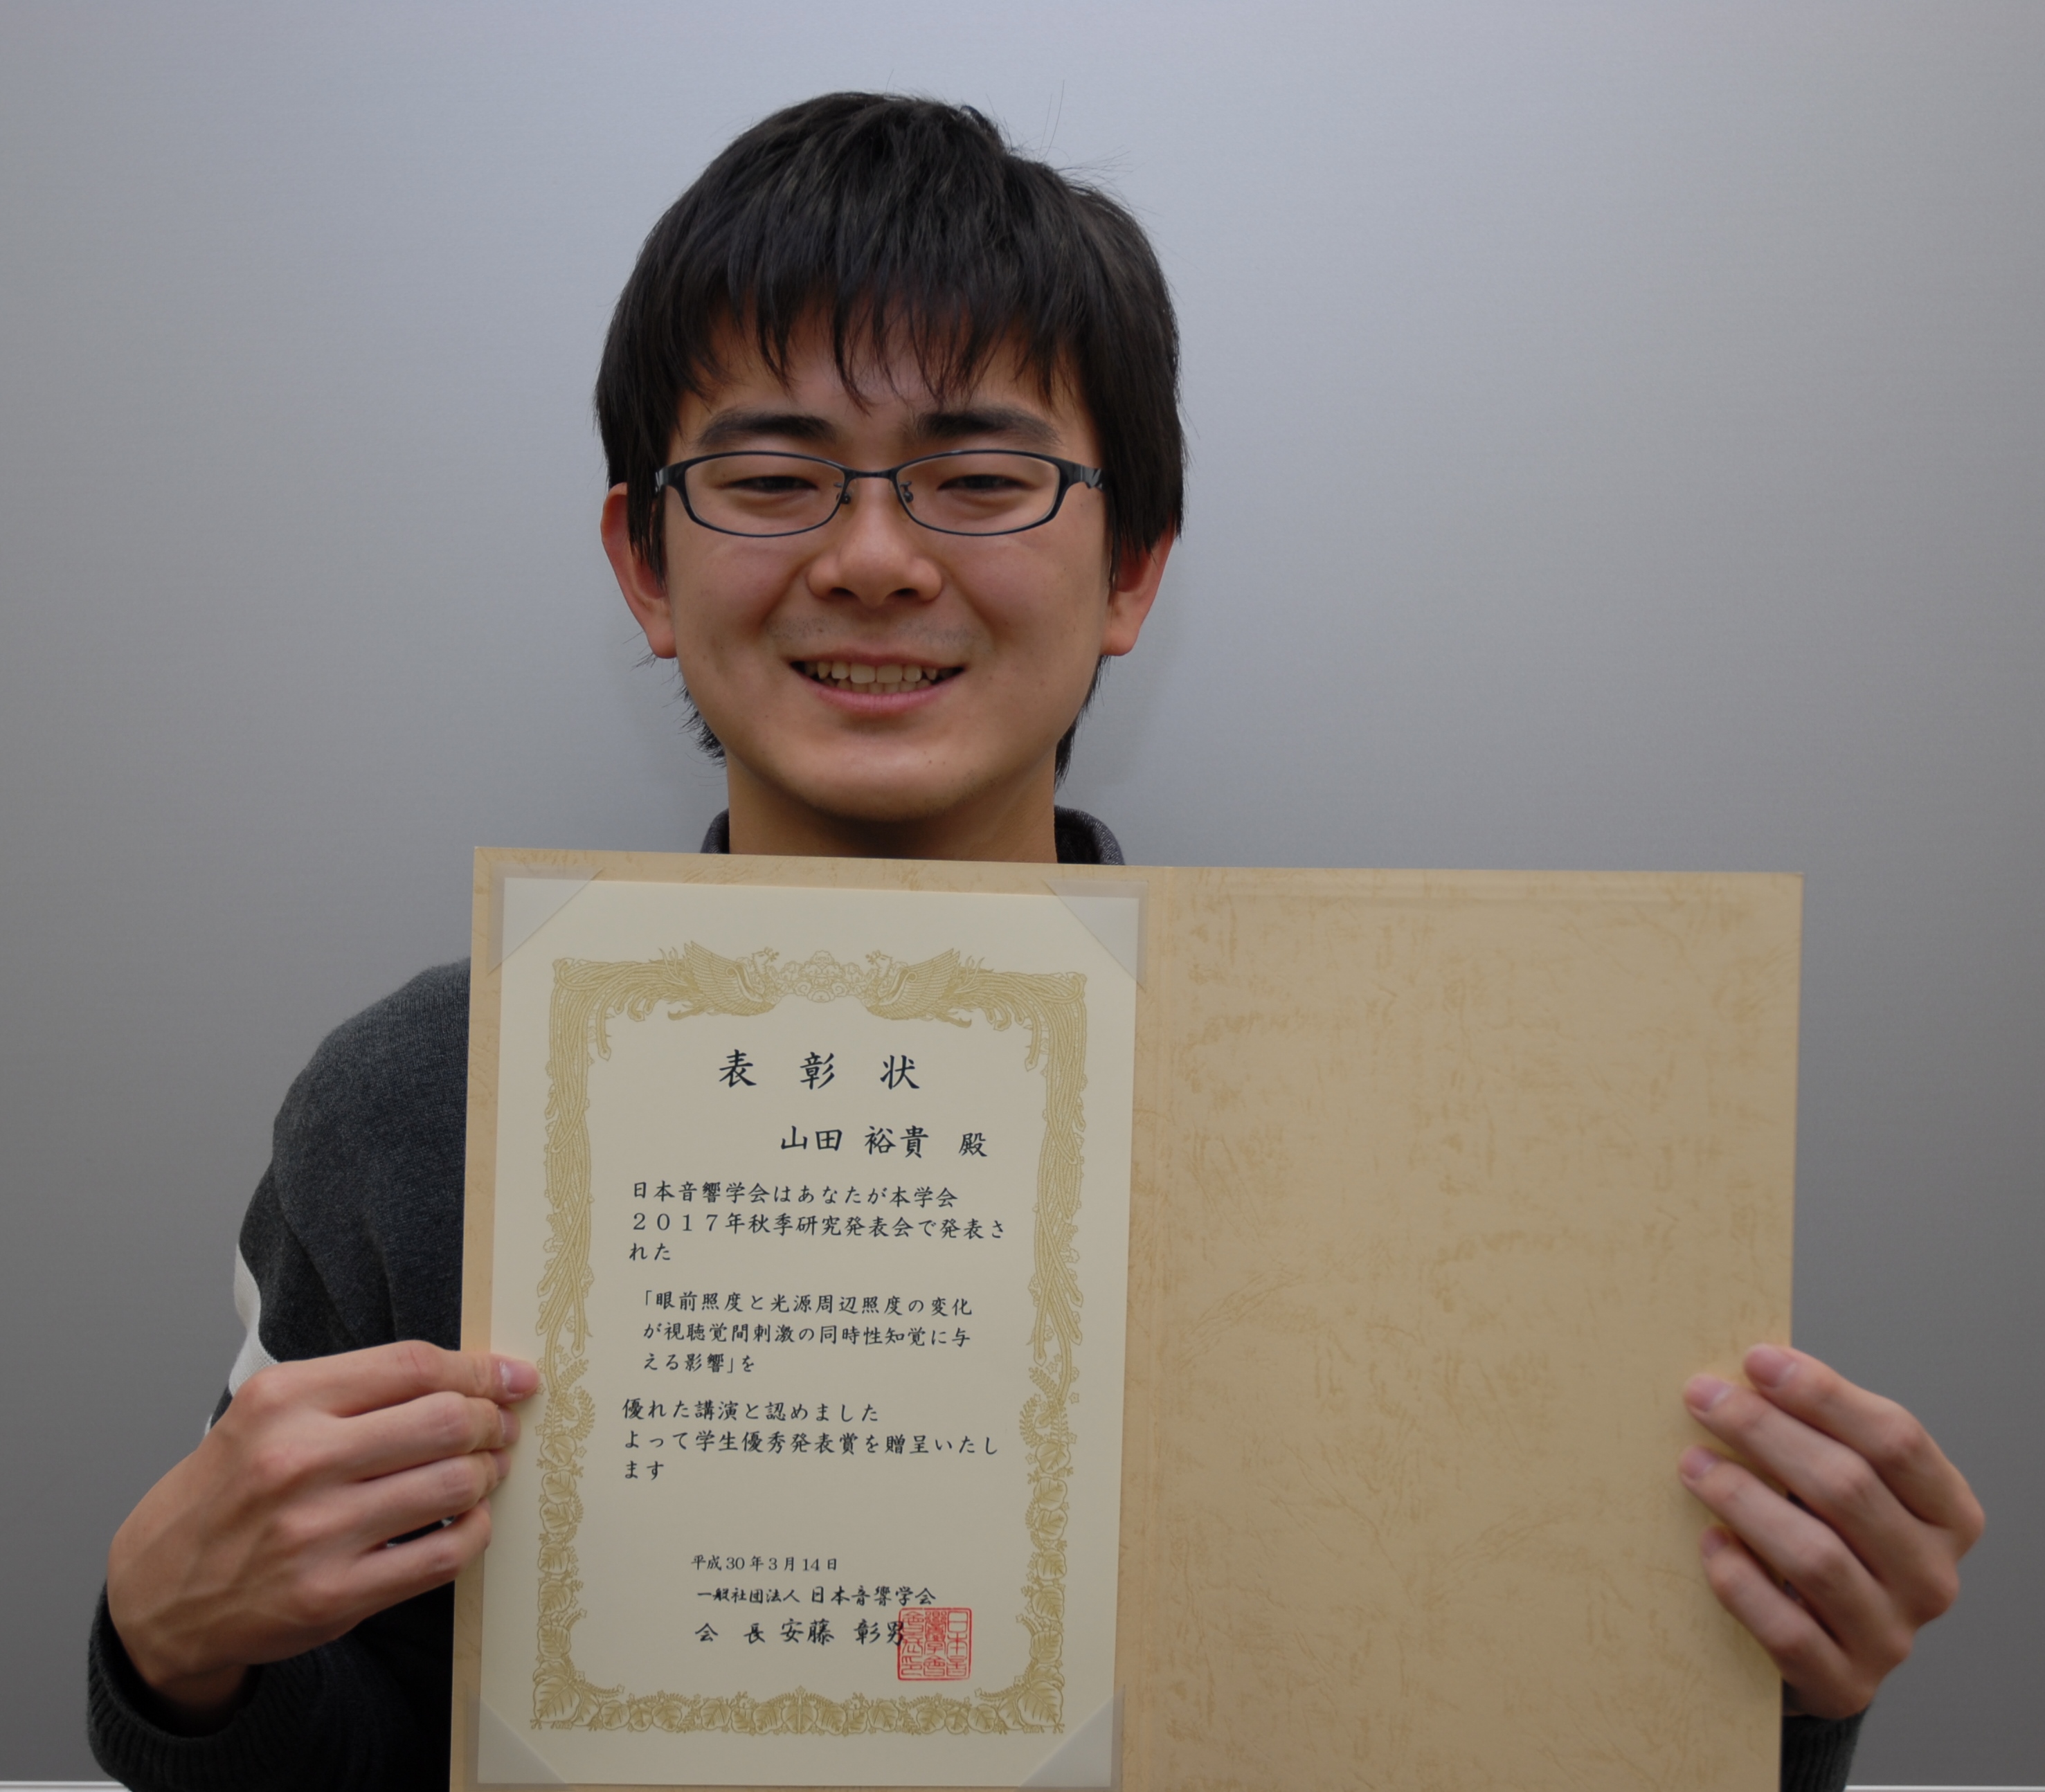 表彰状
山田 裕貴 殿
日本音響学会はあなたが本学会
2017年秋季研究発表会で発表さ
れた
「眼前照度と光源周辺照度の変化
が視聴覚間刺激の同時性知覚に与
える影響」を
優れた講演と認めました
よって学生優秀発表賞を贈呈いたし
ます
平成30年3月14日
一般社団法人 日本音響学会
会 長 安藤 彰男